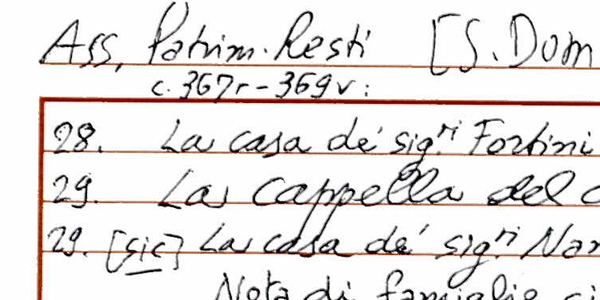 Ass. Patrim. Resti [S. Dom
c. 367r-369v:
28. La casa de' sig.ri Fortini
29. La cappella del
29. [sic] La casa de' sig.ri Nar
Nota di famiglie